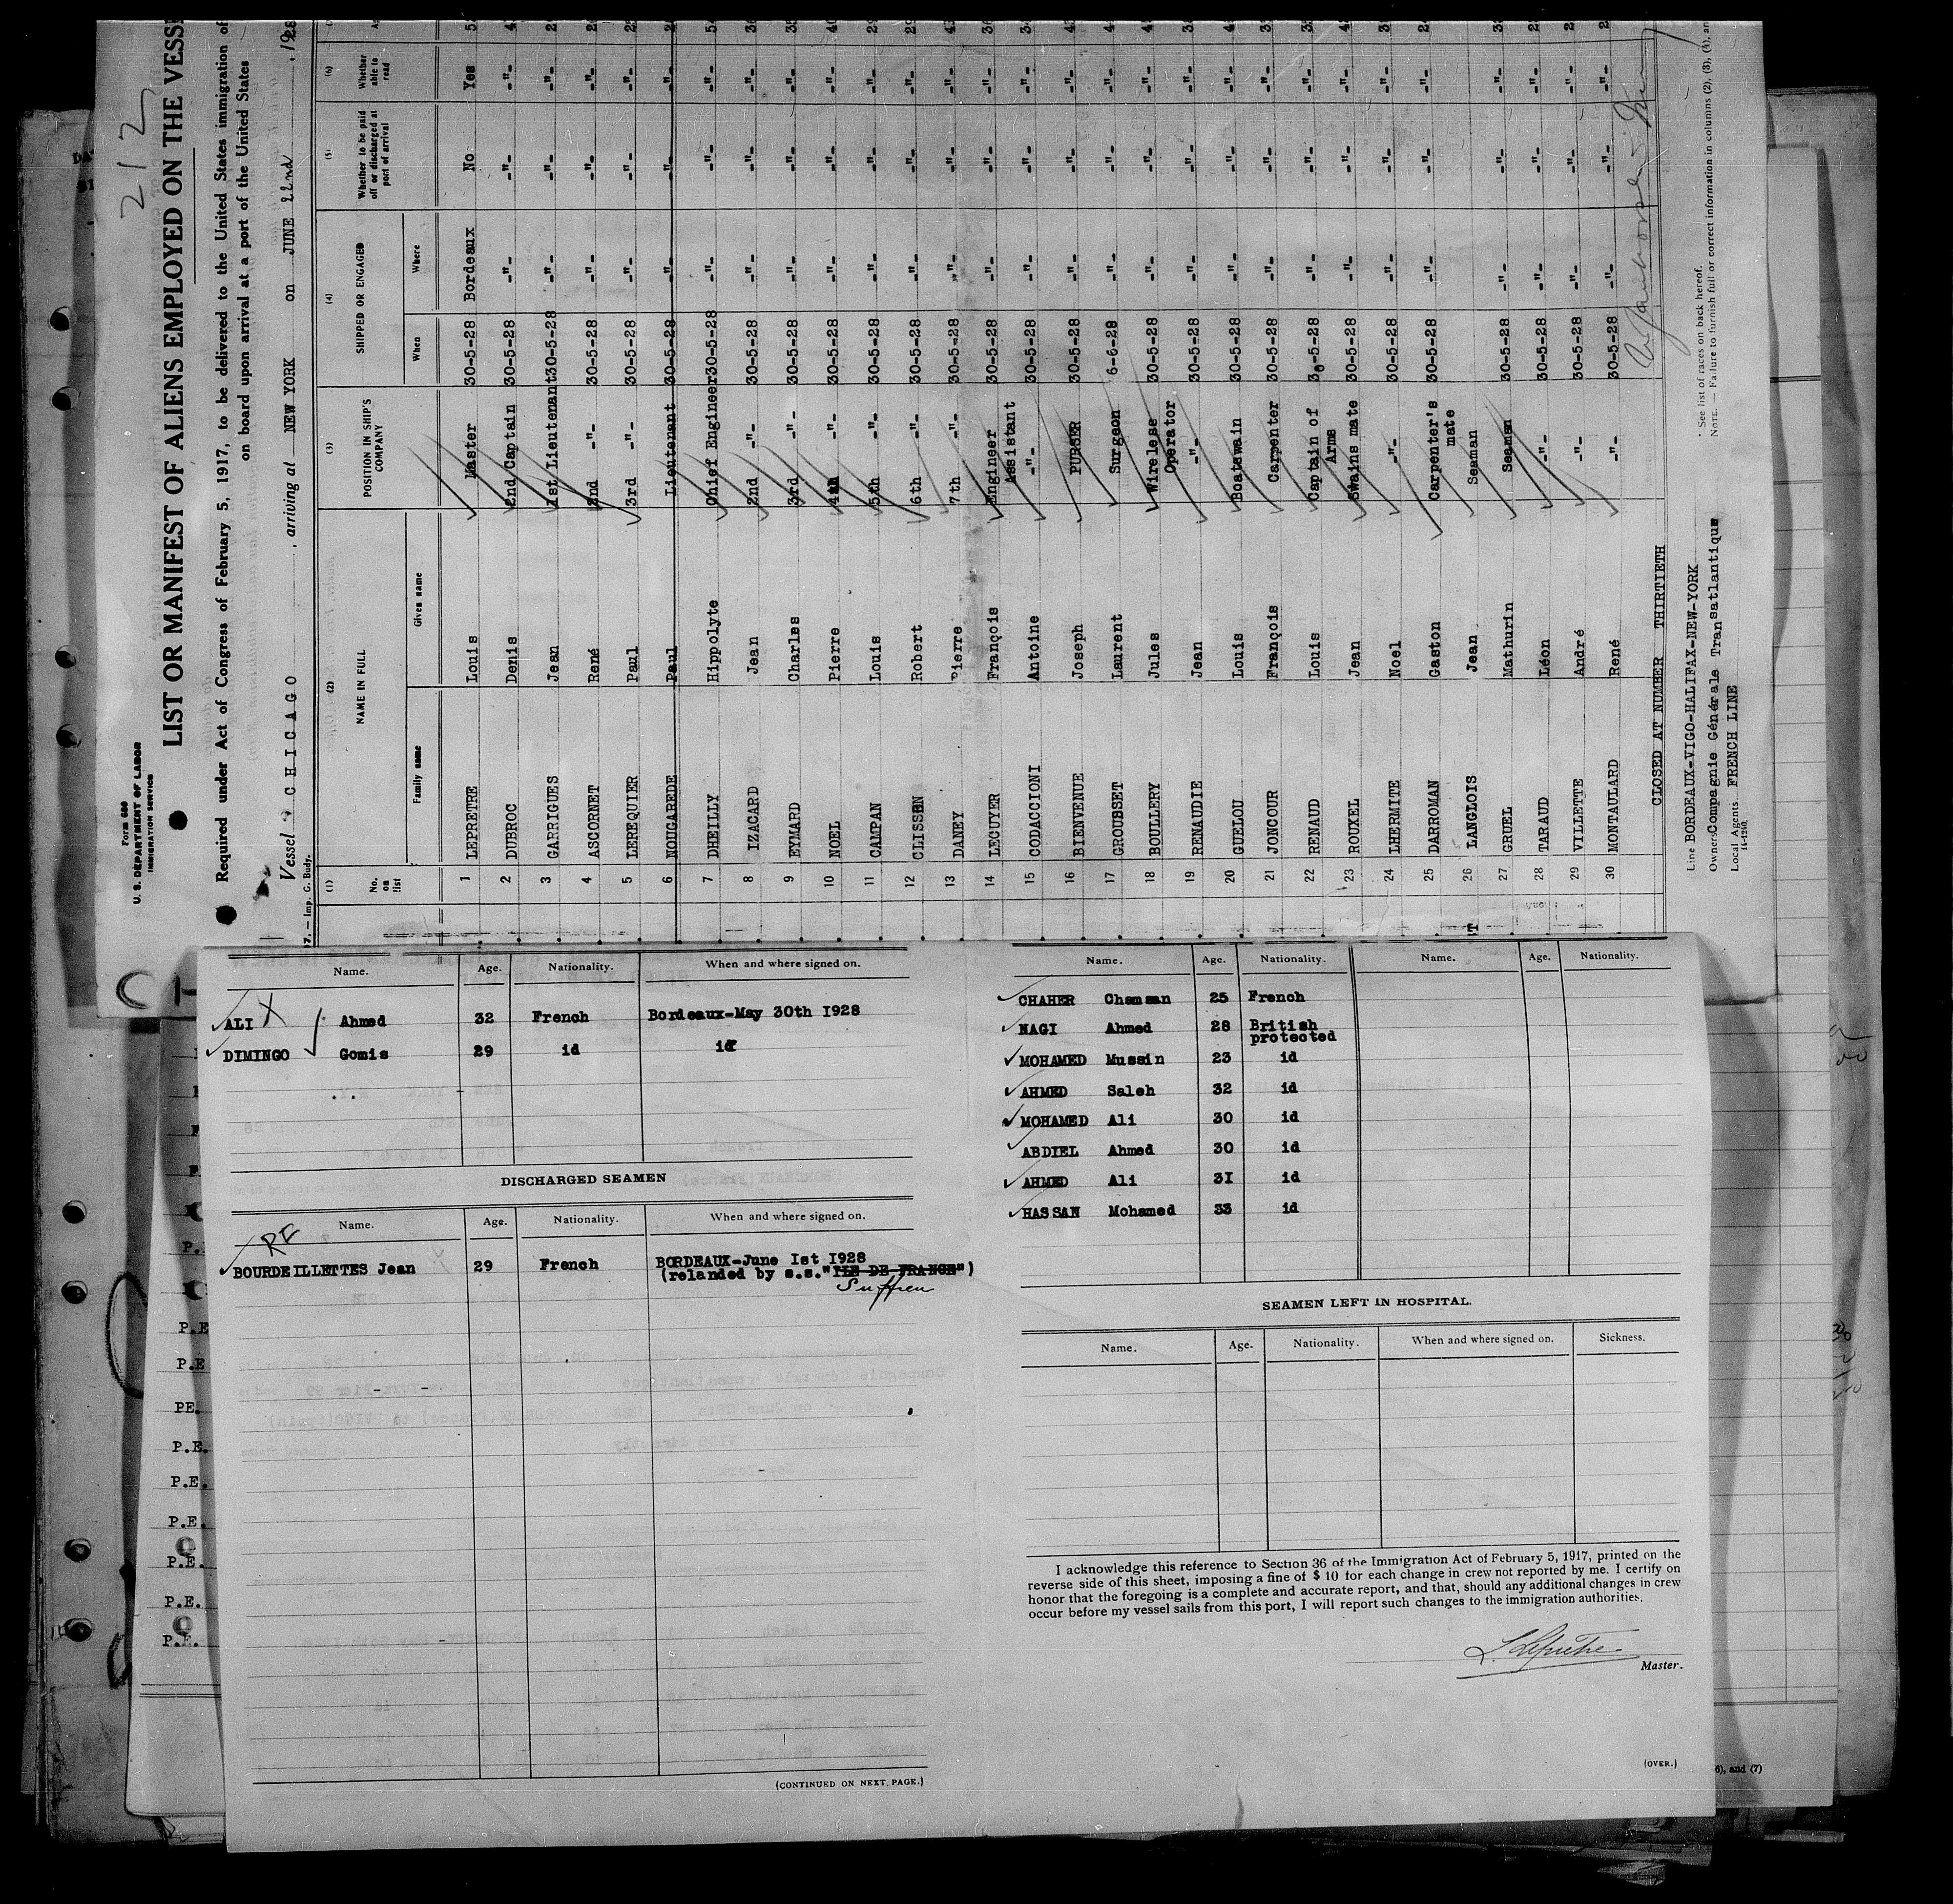 212
Form 680
U. S. DEPARTMENT OF LABOR
IMMIGRATION SERVICE
LIST OR MANIFEST OF ALIENS EMPLOYED ON THE VESS
Required under Act of Congress of February 5, 1917, to be delivered to the United States immigration of
on board upon arrival at a port of the United States
Vessel CHICAGO , arriving at NEW YORK on JUNE 22nd , 1928
7. — Imp. G. Budy.
(1) (2) (3) (4) (5) (6)
No. on list NAME IN FULL POSITION IN SHIP'S COMPANY SHIPPED OR ENGAGED Whether to be paid off or discharged at port of arrival Whether able to read
Family name Given name When Where
1 LEPRETRE Louis Master 30-5-28 Bordeaux No Yes
2 DUBROC Denis 2nd Captain 30-5-28 -"- -"- -"-
3 GARRIGUES Jean 1st Lieutenant 30-5-28 -"- -"- -"-
4 ASCORNET René 2nd -"- 30-5-28 -"- -"- -"-
5 LEREQUIER Paul 3rd -"- 30-5-28 -"- -"- -"-
6 NOUGAREDE Paul Lieutenant 30-5-28 -"- -"- -"-
7 DHEILLY Hippolyte Chief Engineer 30-5-28 -"- -"- -"-
8 IZACARD Jean 2nd -"- 30-5-28 -"- -"- -"-
9 EYMARD Charles 3rd -"- 30-5-28 -"- -"- -"-
10 NOEL Pierre 4th -"- 30-5-28 -"- -"- -"-
11 CAMPAN Louis 5th -"- 30-5-28 -"- -"- -"-
12 CLISSEN Robert 6th -"- 30-5-28 -"- -"- -"-
13 DANEY Pierre 7th -"- 30-5-28 -"- -"- -"-
14 LECUYER François Engineer Assistant 30-5-28 -"- -"- -"-
15 CODACCIONI Antoine -"- 30-5-28 -"- -"- -"-
16 BIENVENUE Joseph PURSER 30-5-28 -"- -"- -"-
17 GROUSSET Laurent Surgeon 6-6-28 -"- -"- -"-
18 BOULLERY Jules Wireless Operator 30-5-28 -"- -"- -"-
19 RENAUDIE Jean -"- 30-5-28 -"- -"- -"-
20 GUELOU Louis Boatswain 30-5-28 -"- -"- -"-
21 JONCOUR François Carpenter 30-5-28 -"- -"- -"-
22 RENAUD Louis Captain of Arms 30-5-28 -"- -"- -"-
23 ROUXEL Jean Swains mate 30-5-28 -"- -"- -"-
24 LHERMITE Noel -"- 30-5-28 -"- -"- -"-
25 DARROMAN Gaston Carpenter's mate 30-5-28 -"- -"- -"-
26 LANGLOIS Jean Seaman
27 GRUEL Mathurin Seaman 30-5-28 -"- -"- -"-
28 TARAUD Léon -"- 30-5-28 -"- -"- -"-
29 VILLETTE André -"- 30-5-28 -"- -"- -"-
30 MONTAULARD René -"- 30-5-28 -"- -"- -"-
CLOSED AT NUMBER THIRTIETH
Line BORDEAUX-VIGO-HALIFAX-NEW-YORK
Owners Compagnie Générale Transatlantique
Local Agents FRENCH LINE
* See list of races on back hereof.
NOTE. — Failure to furnish full or correct information in columns (2), (3), (4), an
Name. Age. Nationality. When and where signed on.
ALI X Ahmed 32 French Bordeaux-May 30th 1928
DIMINGO Gomis 29 id id
DISCHARGED SEAMEN
Name. Age. Nationality. When and where signed on.
RE
BOURDEILLETTES Jean 29 French BORDEAUX-June 1st 1928
(relanded by s.s."ILE DE FRANCE")
Suffren
(CONTINUED ON NEXT. PAGE.)
Name. Age. Nationality. Name. Age. Nationality.
CHAHER Chamsan 25 French
NAGI Ahmed 28 British protected
MOHAMED Mussin 23 id
AHMED Saleh 32 id
MOHAMED Ali 30 id
ABDIEL Ahmed 30 id
AHMED Ali 31 id
HASSAN Mohamed 33 id
SEAMEN LEFT IN HOSPITAL.
Name. Age. Nationality. When and where signed on. Sickness.
I acknowledge this reference to Section 36 of the Immigration Act of February 5, 1917, printed on the
reverse side of this sheet, imposing a fine of $ 10 for each change in crew not reported by me. I certify on
honor that the foregoing is a complete and accurate report, and that, should any additional changes in crew
occur before my vessel sails from this port, I will report such changes to the immigration authorities.
L. Leprêtre
Master.
(OVER.)
6), and (7)
P.E
P.E
PE.
P.E.
P.E.
P.E.
P.E.
P.E.
P.E.